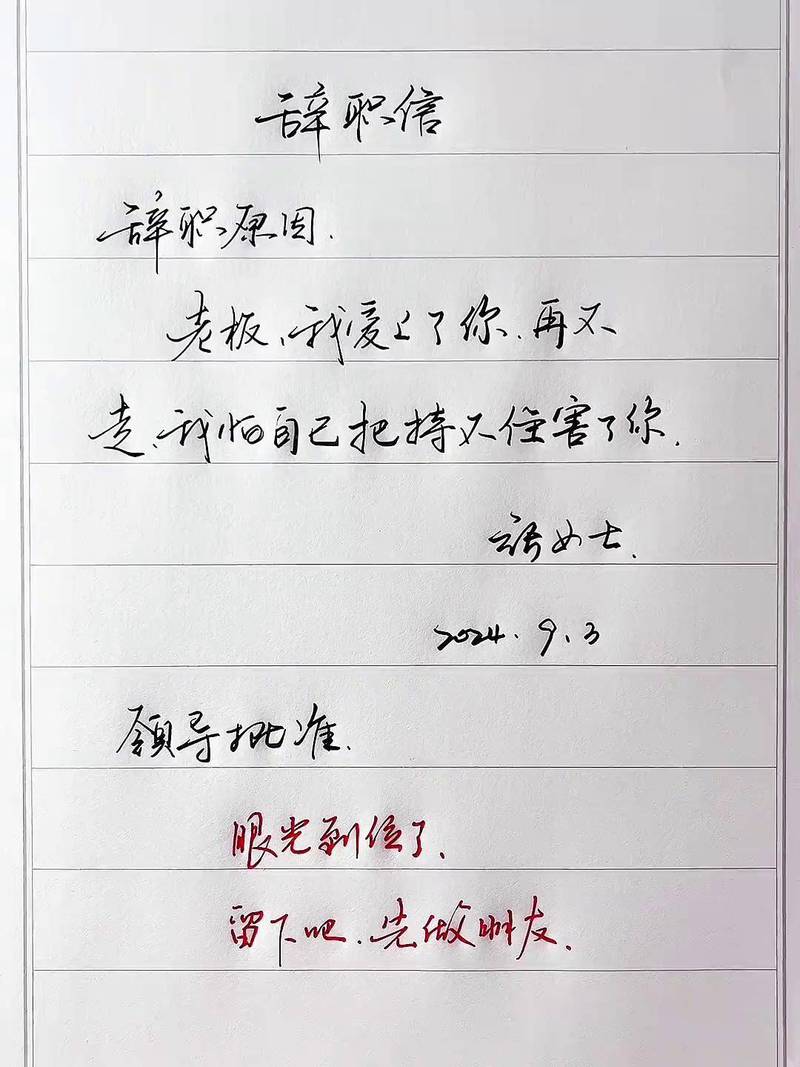 辞职信
辞职原因.
老板、我爱上了你.再不
走、我怕自己把持不住害了你.
语女士.
2024.9.3
领导批准.
眼光到位了.
留下吧.先做朋友.